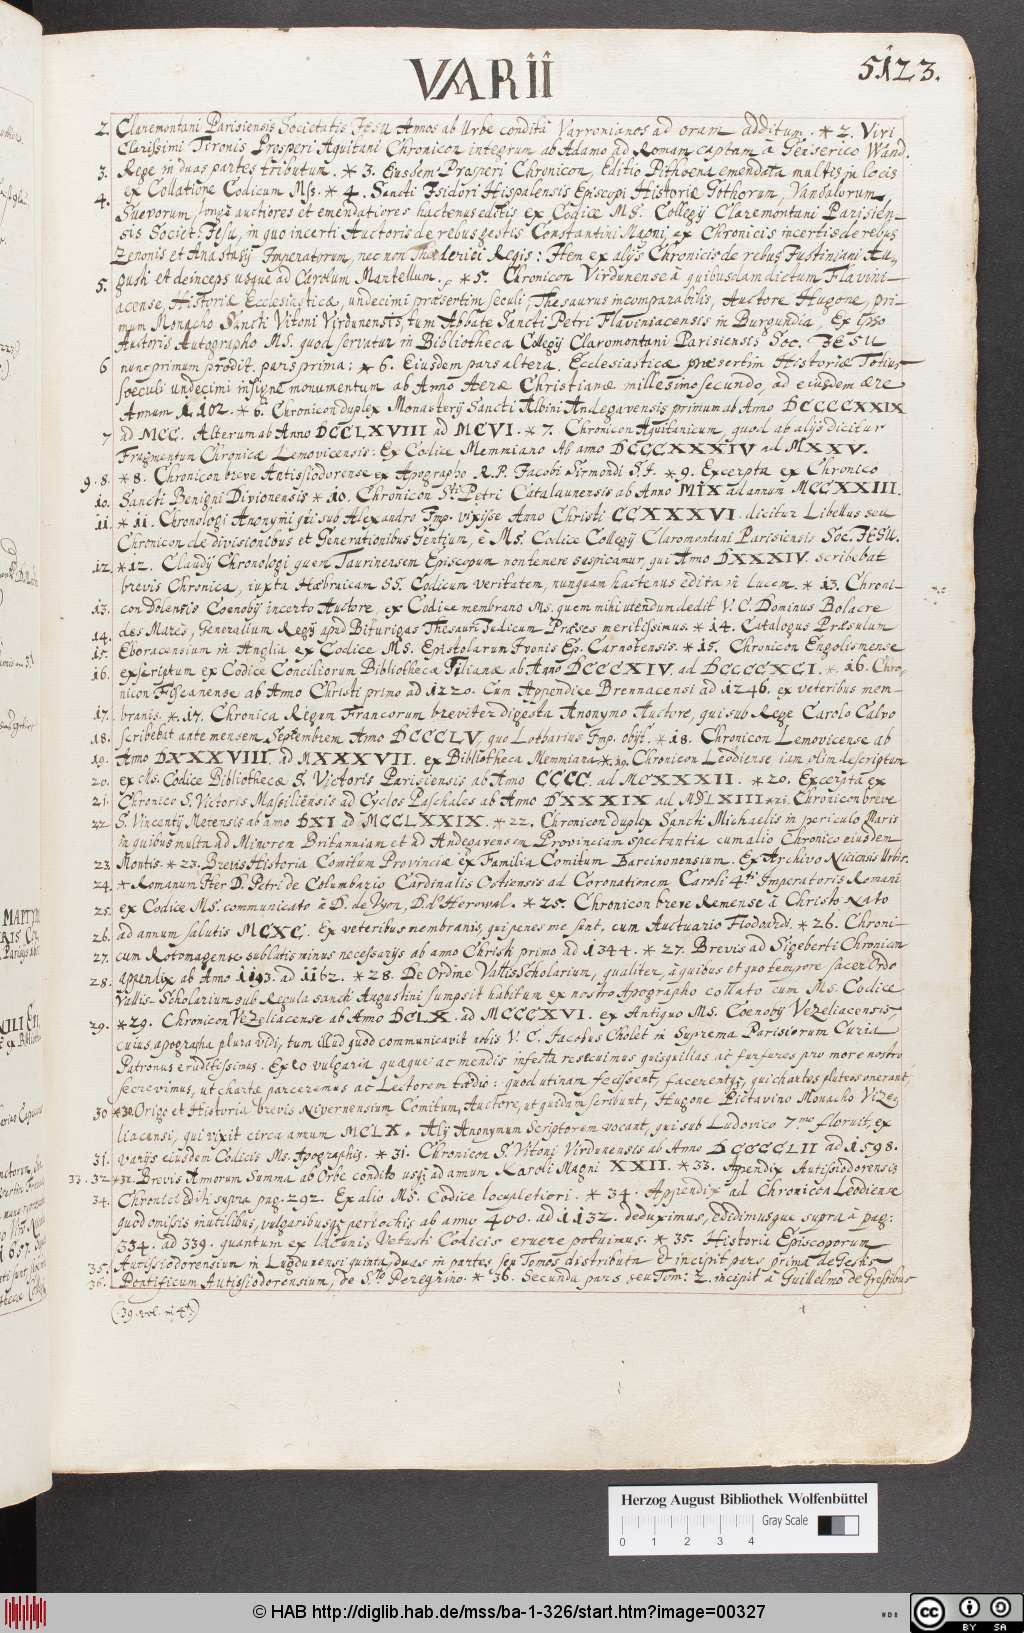 VARII
5123.
2. Claremontani Parisiensis Societatis JESU Annos ab Urbe condita Varronianos ad oram additum. * 2. Viri
Clarissimi Tironis Prosperi Aquitani Chronicon integrum ab Adamo ad Romam captam a Genserico Wand.
3. Rege in duas partes tributum. * 3. Eiusdem Prosperi Chronicon, editio Pithoena emendata multis in locis
4. ex Collatione Codicum Mss. * 4. Sancti Isidori Hispalensis Episcopi Historiæ Gothorum, Vandalorum,
Suevorum, longè auctiores et emendatiores hactenus editis ex Codice MS. Collegij Claremontani Parisien-
sis Societ. Jesu, in quo incerti Auctoris de rebus gestis Constantini Magni, ex Chronicis incertis de rebus
Zenonis et Anastasij Imperatorum, nec non Theoderici Regis: Item ex alijs Chronicis de rebus Justiniani Au-
5. gusti et deinceps usque ad Carolum Martellum. * 5. Chronicon Virdunense à quibusdam dictum Flavini-
acense, Historiæ Ecclesiasticæ, undecimi præsertim seculi, Thesaurus incomparabilis, Auctore Hugone, pri-
mum Monacho Sancti Vitoni Virdunensis, tum Abbate Sancti Petri Flaviniacensis in Burgundia, Ex ipso
Autoris Autographo MS. quod servatur in Bibliotheca Collegij Claromontani Parisiensis Soc. JESU
6 nunc primum prodit. pars prima: * 6. Eiusdem pars altera, Ecclesiasticæ præsertim Historiæ Totius
soeculi undecimi insigne monumentum ab Anno Aeræ Christianæ millesimo secundo, ad eiusdem ære
Annum 1102. * 6. Chronicon duplex Monasterij Sancti Albini Andegavensis primum ab Anno DCCCCXXIX
7 ad MCC. Alterum ab Anno DCCLXVIII ad MCVI. * 7. Chronicon Aquitanicum quod ab alijs dicitur
Fragmentum Chronicæ Lemovicensis: Ex Codice Memmiano Ab anno DCCCXXXIV ad MXXV.
9. 8. * 8. Chronicon breve Antissiodorense ex Apographo R.P. Jacobi Sirmondi S.J. * 9. Excerpta ex Chronico
10. Sancti Benigni Divionensis * 10. Chronicon Sti Petri Catalaunensis ab Anno MIX ad annum MCCXXIII.
11. * 11. Chronologi Anonymi qui sub Alexandro Imp. vixisse Anno Christi CCXXXVI. dicitur Libellus seu
Chronicon de divisionibus et Generationibus Gentium, è MS. Codice Collegij Claromontani Parisiensis Soc. JESU.
12. * 12. Claudij Chronologi quem Taurinensem Episcopum non temere suspicamur, qui Anno DXXXIV. scribebat
brevis Chronica, iuxta Hæbraicam SS. Codicum veritatem, nunquam hactenus edita in lucem. * 13. Chroni-
13. con Dolensis Coenobij incerto Auctore, ex Codice membrano MS. quem mihi utendum dedit V.C. Dominus Bolacre
14. des Mares, Generalium Regij apud Biturigas Thesauri Judicum Præses meritissimus. * 14. Catalogus Præsulum
15. Eboracensium in Anglia ex Codice MS. Epistolarum Ivonis Ep. Carnotensis. * 15. Chronicon Engolismense
16. exscriptum ex Codice Conciliorum Bibliothecæ Tilianæ ab Anno DCCCXIV. ad DCCCCXCI. * 16. Chro-
nicon Fiscanense ab Anno Christi primo ad 1220. Cum Appendice Brennacensi ad 1246. ex veteribus mem-
17. branis. * 17. Chronica Regum Francorum breviter digesta Anonymo Auctore, qui sub Rege Carolo Calvo
18. scribebat ante mensem Septembrem Anno DCCCLV. quo Lotharius Imp. obijt. * 18. Chronicon Lemovicense ab
19. Anno DXXXVIII. ad MXXXVII. ex Bibliotheca Memmiana * 19. Chronicon Leodiense iam olim descriptum
20. ex MS. Codice Bibliothecæ S. Victoris Parisiensis ab Anno CCCC. ad MCXXXII. * 20. Excerpta ex
21. Chronico S. Victoris Massiliensis ad Cyclos Paschales ab Anno DXXXIX ad MDLXIII * 21. Chronicon breve
22 S. Vincentij Metensis ab anno DXI ad MCCLXXIX. * 22. Chronicon duplex Sancti Michaelis in periculo Maris
in quibus multa ad Minorem Britanniam et ad Andegavensem Provinciam spectantia cum alio Chronico eiusdem
23. Montis. * 23. Brevis Historia Comitum Provinciæ ex Familia Comitum Barcinonensium. Ex Archivo Niciensis Urbis.
24. * Romanum Iter D. Petri de Columbario Cardinalis Ostiensis ad Coronationem Caroli 4ti Imperatoris Romani
25. ex Codice MS. communicato à D. de Vyon, D. d'Herowal. * 25. Chronicon breve Remense à Christo Nato
26. ad annum salutis MCXC. Ex veteribus membranis, qui penes me sunt, cum Auctuario Flodoardi. * 26. Chroni-
27. cum Rotomagense sublatis minus necessarijs ab anno Christi primo ad 1344. * 27. Brevis ad Sigeberti Chronicon
28. appendix ab Anno 1193. ad 1162. * 28. De Ordine Vallis Scholarium, qualiter, à quibus et quo tempore sacer Ordo
Vallis-Scholarium sub Regula sancti Augustini sumpsit habitum ex nostro Apographo collato cum MS. Codice
29. * 29. Chronicon Vezeliacense ab Anno DCLX. ad MCCCXVI. ex Antiquo MS. Coenobij Vezeliacensis
cuius apographa plura vidi, tum illud quod communicavit nobis V.C. Jacobus Cholet in Suprema Parisiorum Curia
Patronus eruditissimus. Ex eo vulgaria quæque ac mendis infecta resecuimus quisquilias ac furfures pro more nostro
secrevimus, ut chartæ parceremus ac Lectorem tædio: quod utinam fecissent, facerentque, qui chartos pluteos onerant.
30 * 30. Origo et Historia brevis Nivernensium Comitum, Auctore, ut quidam scribunt, Hugone Pictavino Monacho Vize-
liacensi, qui vixit circa annum MCLX. Alij Anonymum Scriptorem vocant, qui sub Ludovico 7mo floruit, ex
31. varijs eiusdem Codicis MS. Apographis. * 31. Chronicon S. Vitoni Virdunensis ab Anno DCCCCLII ad 1598.
33. 32 * 32. Brevis Annorum Summa ab Orbe condito usq; ad annum Karoli Magni XXII. * 33. Appendix Autissiodorensis
34. Chronico editi supra pag. 292. Ex alio MS. Codice locupletiori. * 34. Appendix ad Chronicon Leodiense
quod omissis inutilibus, vulgaribusq; periochis ab anno 400. ad 1132. deduximus, edidimusque supra à pag:
334. ad 339. quantum ex lacunis Vetusti Codicis eruere potuimus. * 35. Historia Episcoporum
35. Autissiodorensium in Lugdunensi quinta, duas in partes seu Tomos distributa et incipit pars prima de Gestis
36. Pontificum Autissiodorensium, de Sto Peregrino. * 36. Secunda pars seu Tom: 2. incipit à Guillelmo de Gressibus
(39. vol. in 4°.)
Herzog August Bibliothek Wolfenbüttel
0 1 2 3 4
Gray Scale
© HAB http://diglib.hab.de/mss/ba-1-326/start.htm?image=00327
WDB
cc BY SA